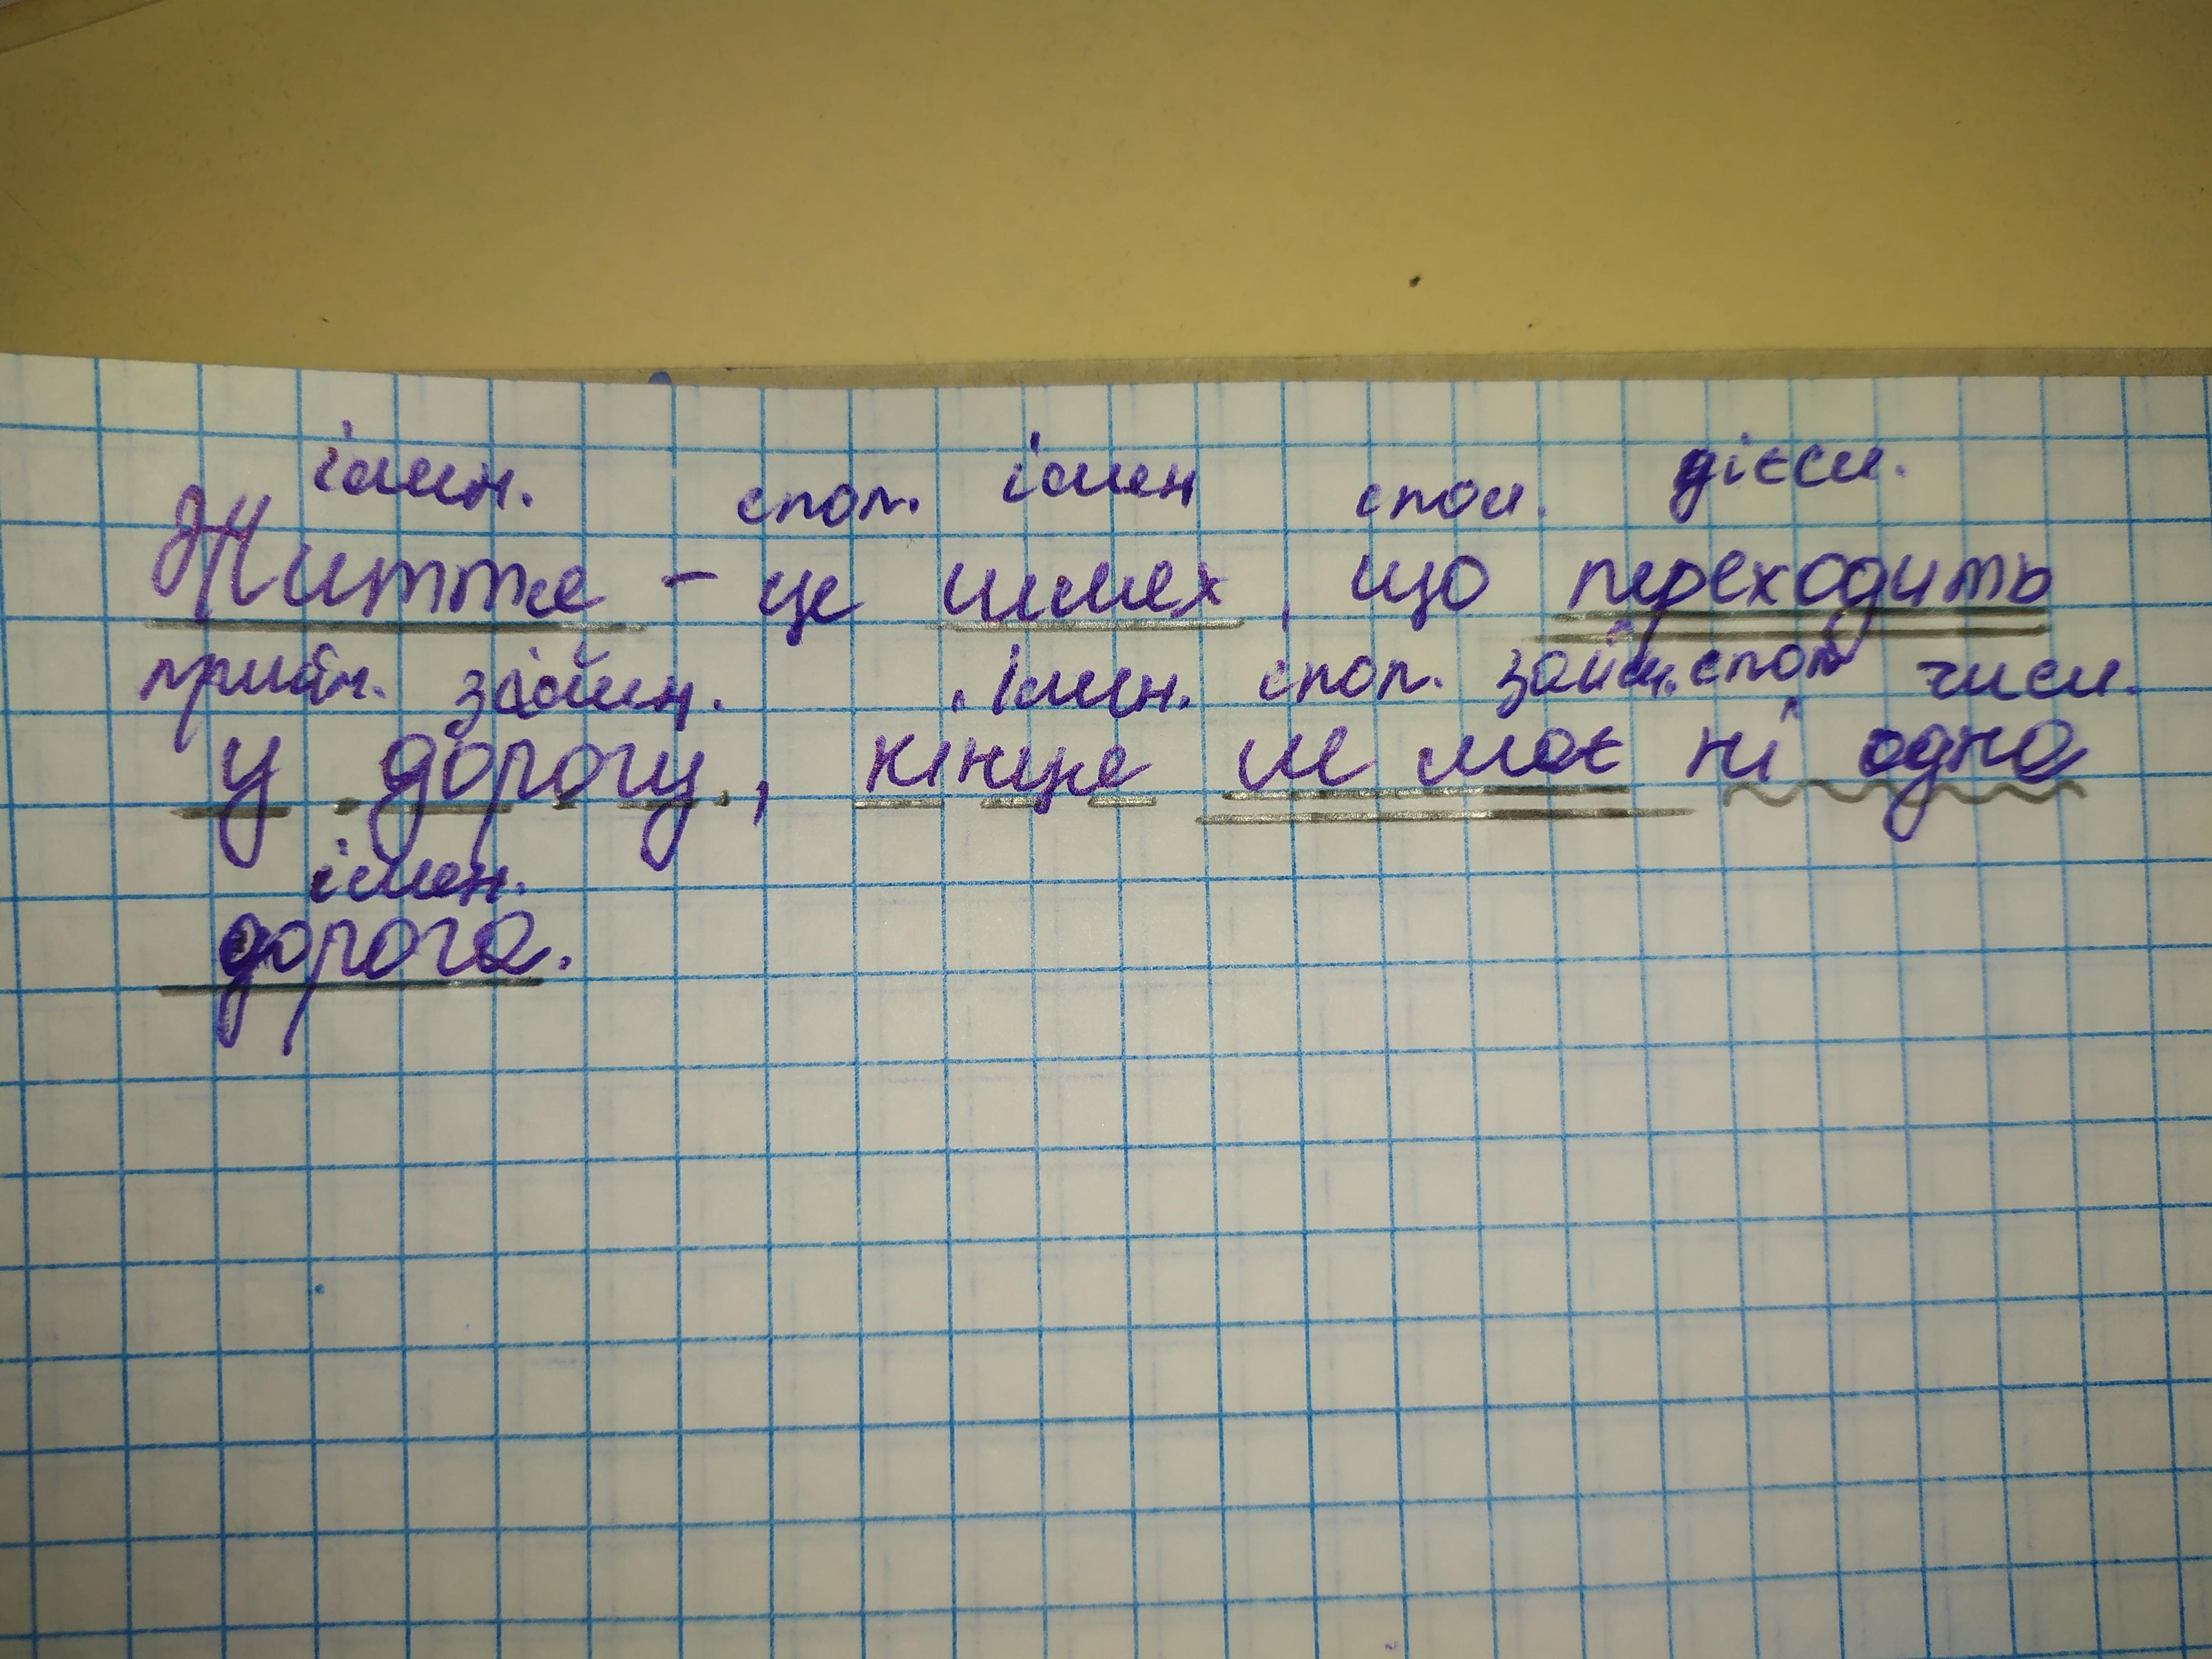 імен. спол. імен спол. дієсл.
Життя - це шлях, що переходить
прийм. займ. імен. спол. займ. спол числ.
у дорогу, кінця не має ні одна
імен.
дорога.